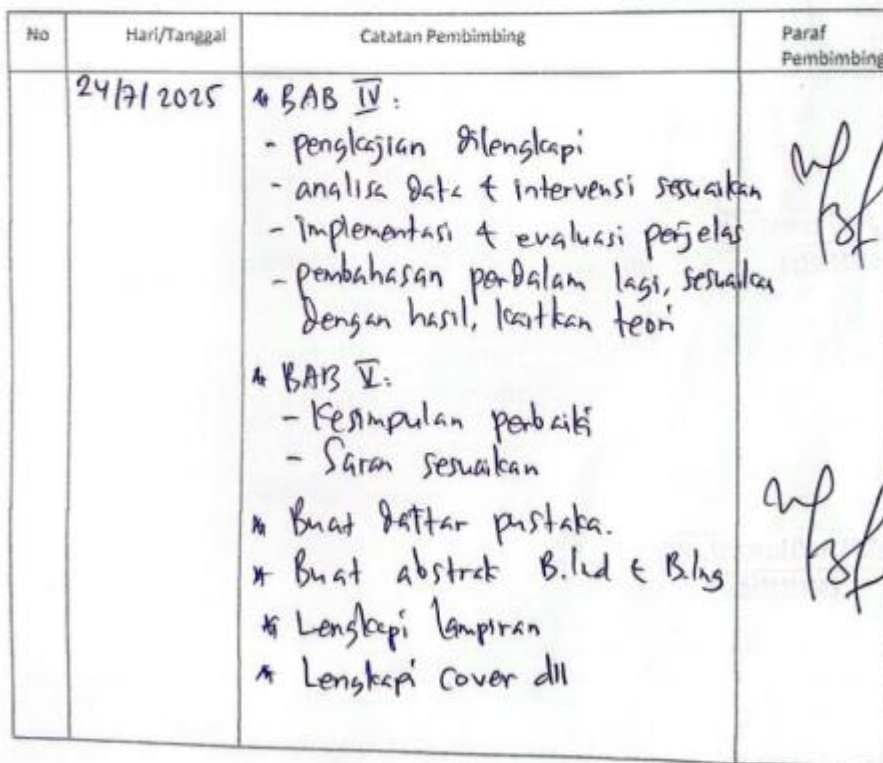 No Hari/Tanggal Catatan Pembimbing Paraf
Pembimbing
24/7/2025 * BAB IV :
- pengkajian dilengkapi
- analisa data & intervensi sesuaikan
- implementasi & evaluasi perjelas
- pembahasan perdalam lagi, sesuaikan
dengan hasil, kaitkan teori
* BAB V:
- Kesimpulan perbaiki
- Saran sesuaikan
* Buat daftar pustaka.
* Buat abstrak B.Ind & B.Ing
* Lengkapi lampiran
* Lengkapi cover dll